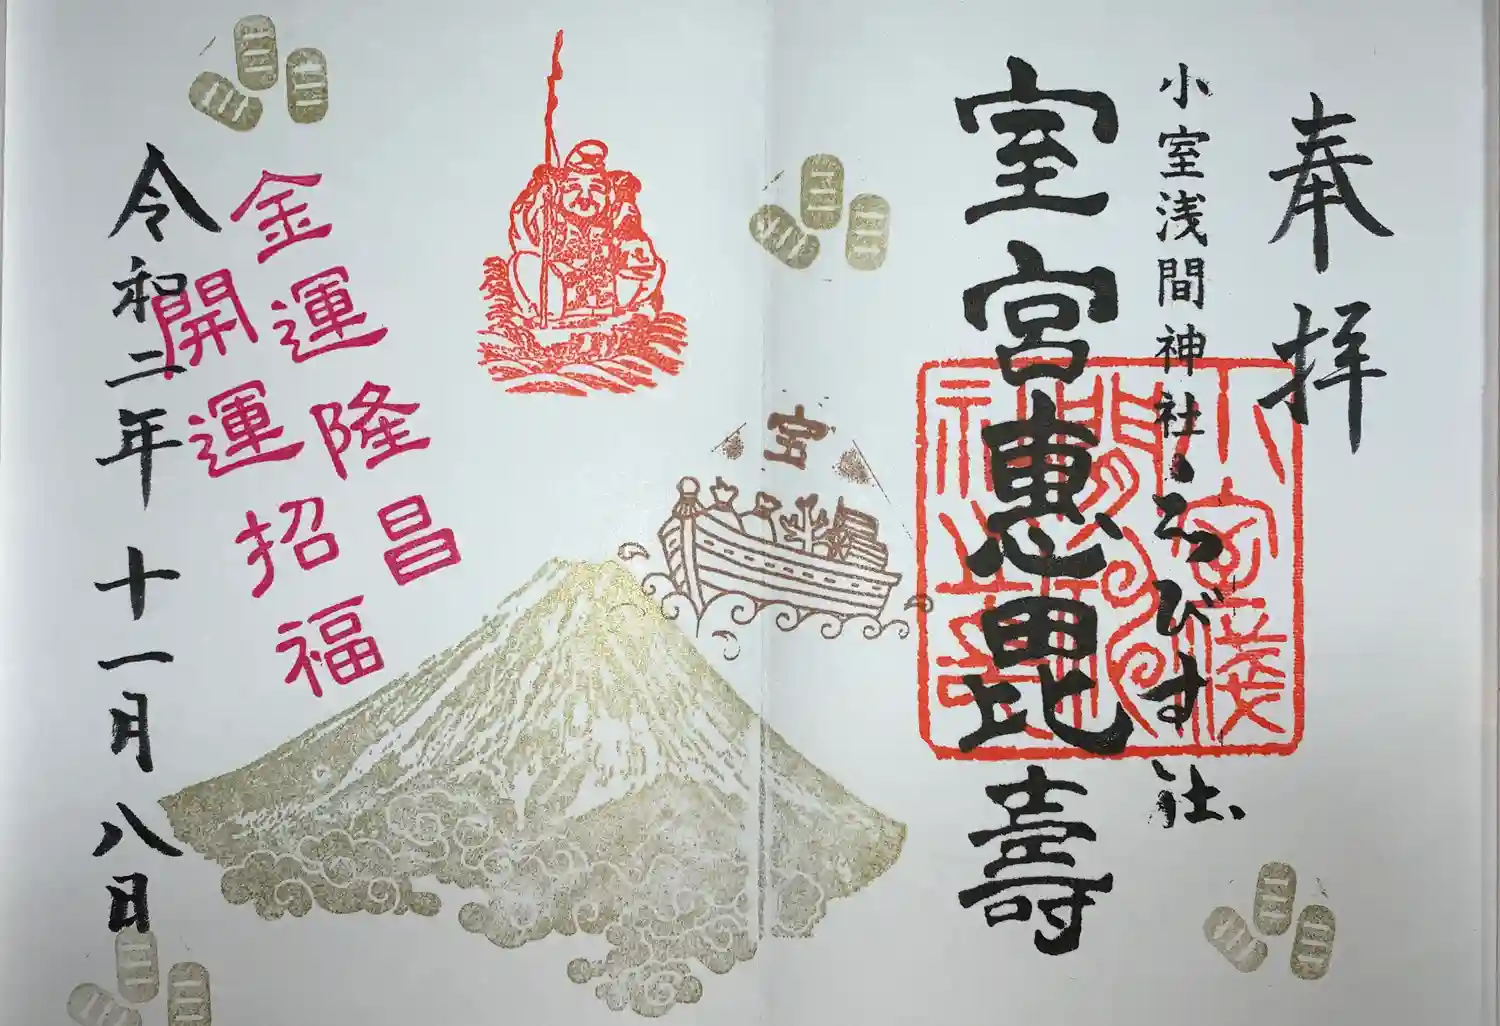 奉拝
小室浅間神社ゑびす社
室宮惠毘壽
宝
金運隆昌
開運招福
令和二年十一月八日